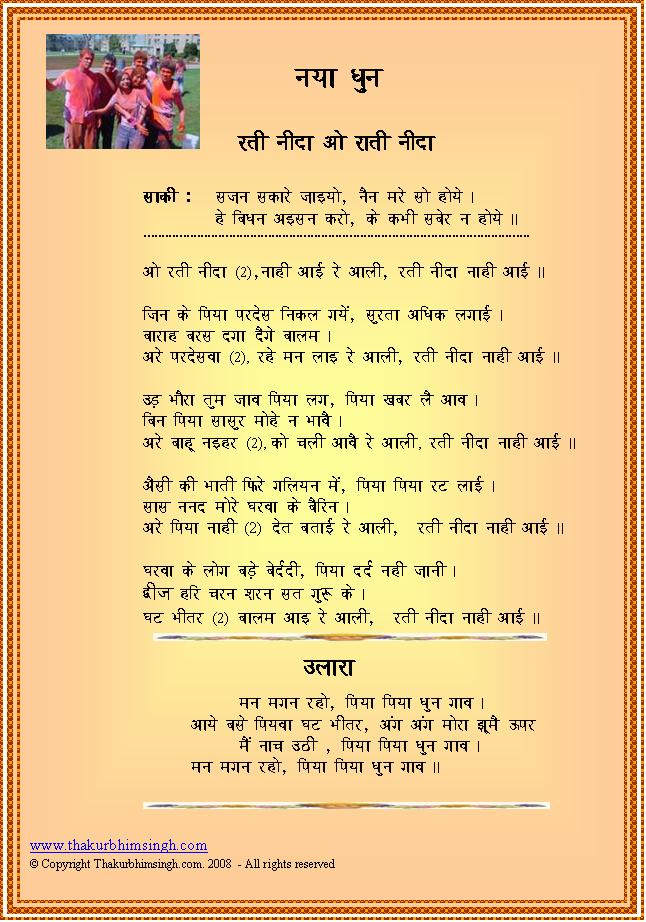 नया धुन
रती नीदा ओ राती नीदा
साकी : सजन सकारे जाइयो, नैन मरे सो होये ।
हे बिधन अइसन करो, के कभी सबेर न होये ॥
ओ रती नीदा (2),नाही आई रे आली, रती नीदा नाही आई ॥
जिन के पिया परदेस निकल गयें, सुरता अधिक लगाई ।
बाराह बरस दगा दैगे बालम ।
अरे परदेसवा (2), रहे मन लाइ रे आली, रती नीदा नाही आई ॥
उड़ भौरा तुम जाव पिया लग, पिया खबर लै आव ।
बिन पिया सासुर मोहे न भावै ।
अरे बाहू नइहर (2),को चली आवै रे आली, रती नीदा नाही आई ॥
अैसी की भाती फिरे गलियन में, पिया पिया रट लाई ।
सास ननद मोरे घरवा के बैरिन ।
अरे पिया नाही (2) देत बताई रे आली, रती नीदा नाही आई ॥
घरवा के लोग बड़े बेर्ददी, पिया दर्द नही जानी ।
द्वीज हरि चरन शरन सत गुरू के ।
घट भीतर (2) बालम आइ रे आली, रती नीदा नाही आई ॥
उलारा
मन मगन रहो, पिया पिया धुन गाव ।
आये बसे पियवा घट भीतर, अंग अंग मोरा झूमै ऊपर
मैं नाच उठी , पिया पिया धुन गाव ।
मन मगन रहो, पिया पिया धुन गाव ॥
www.thakurbhimsingh.com
© Copyright Thakurbhimsingh.com. 2008 - All rights reserved